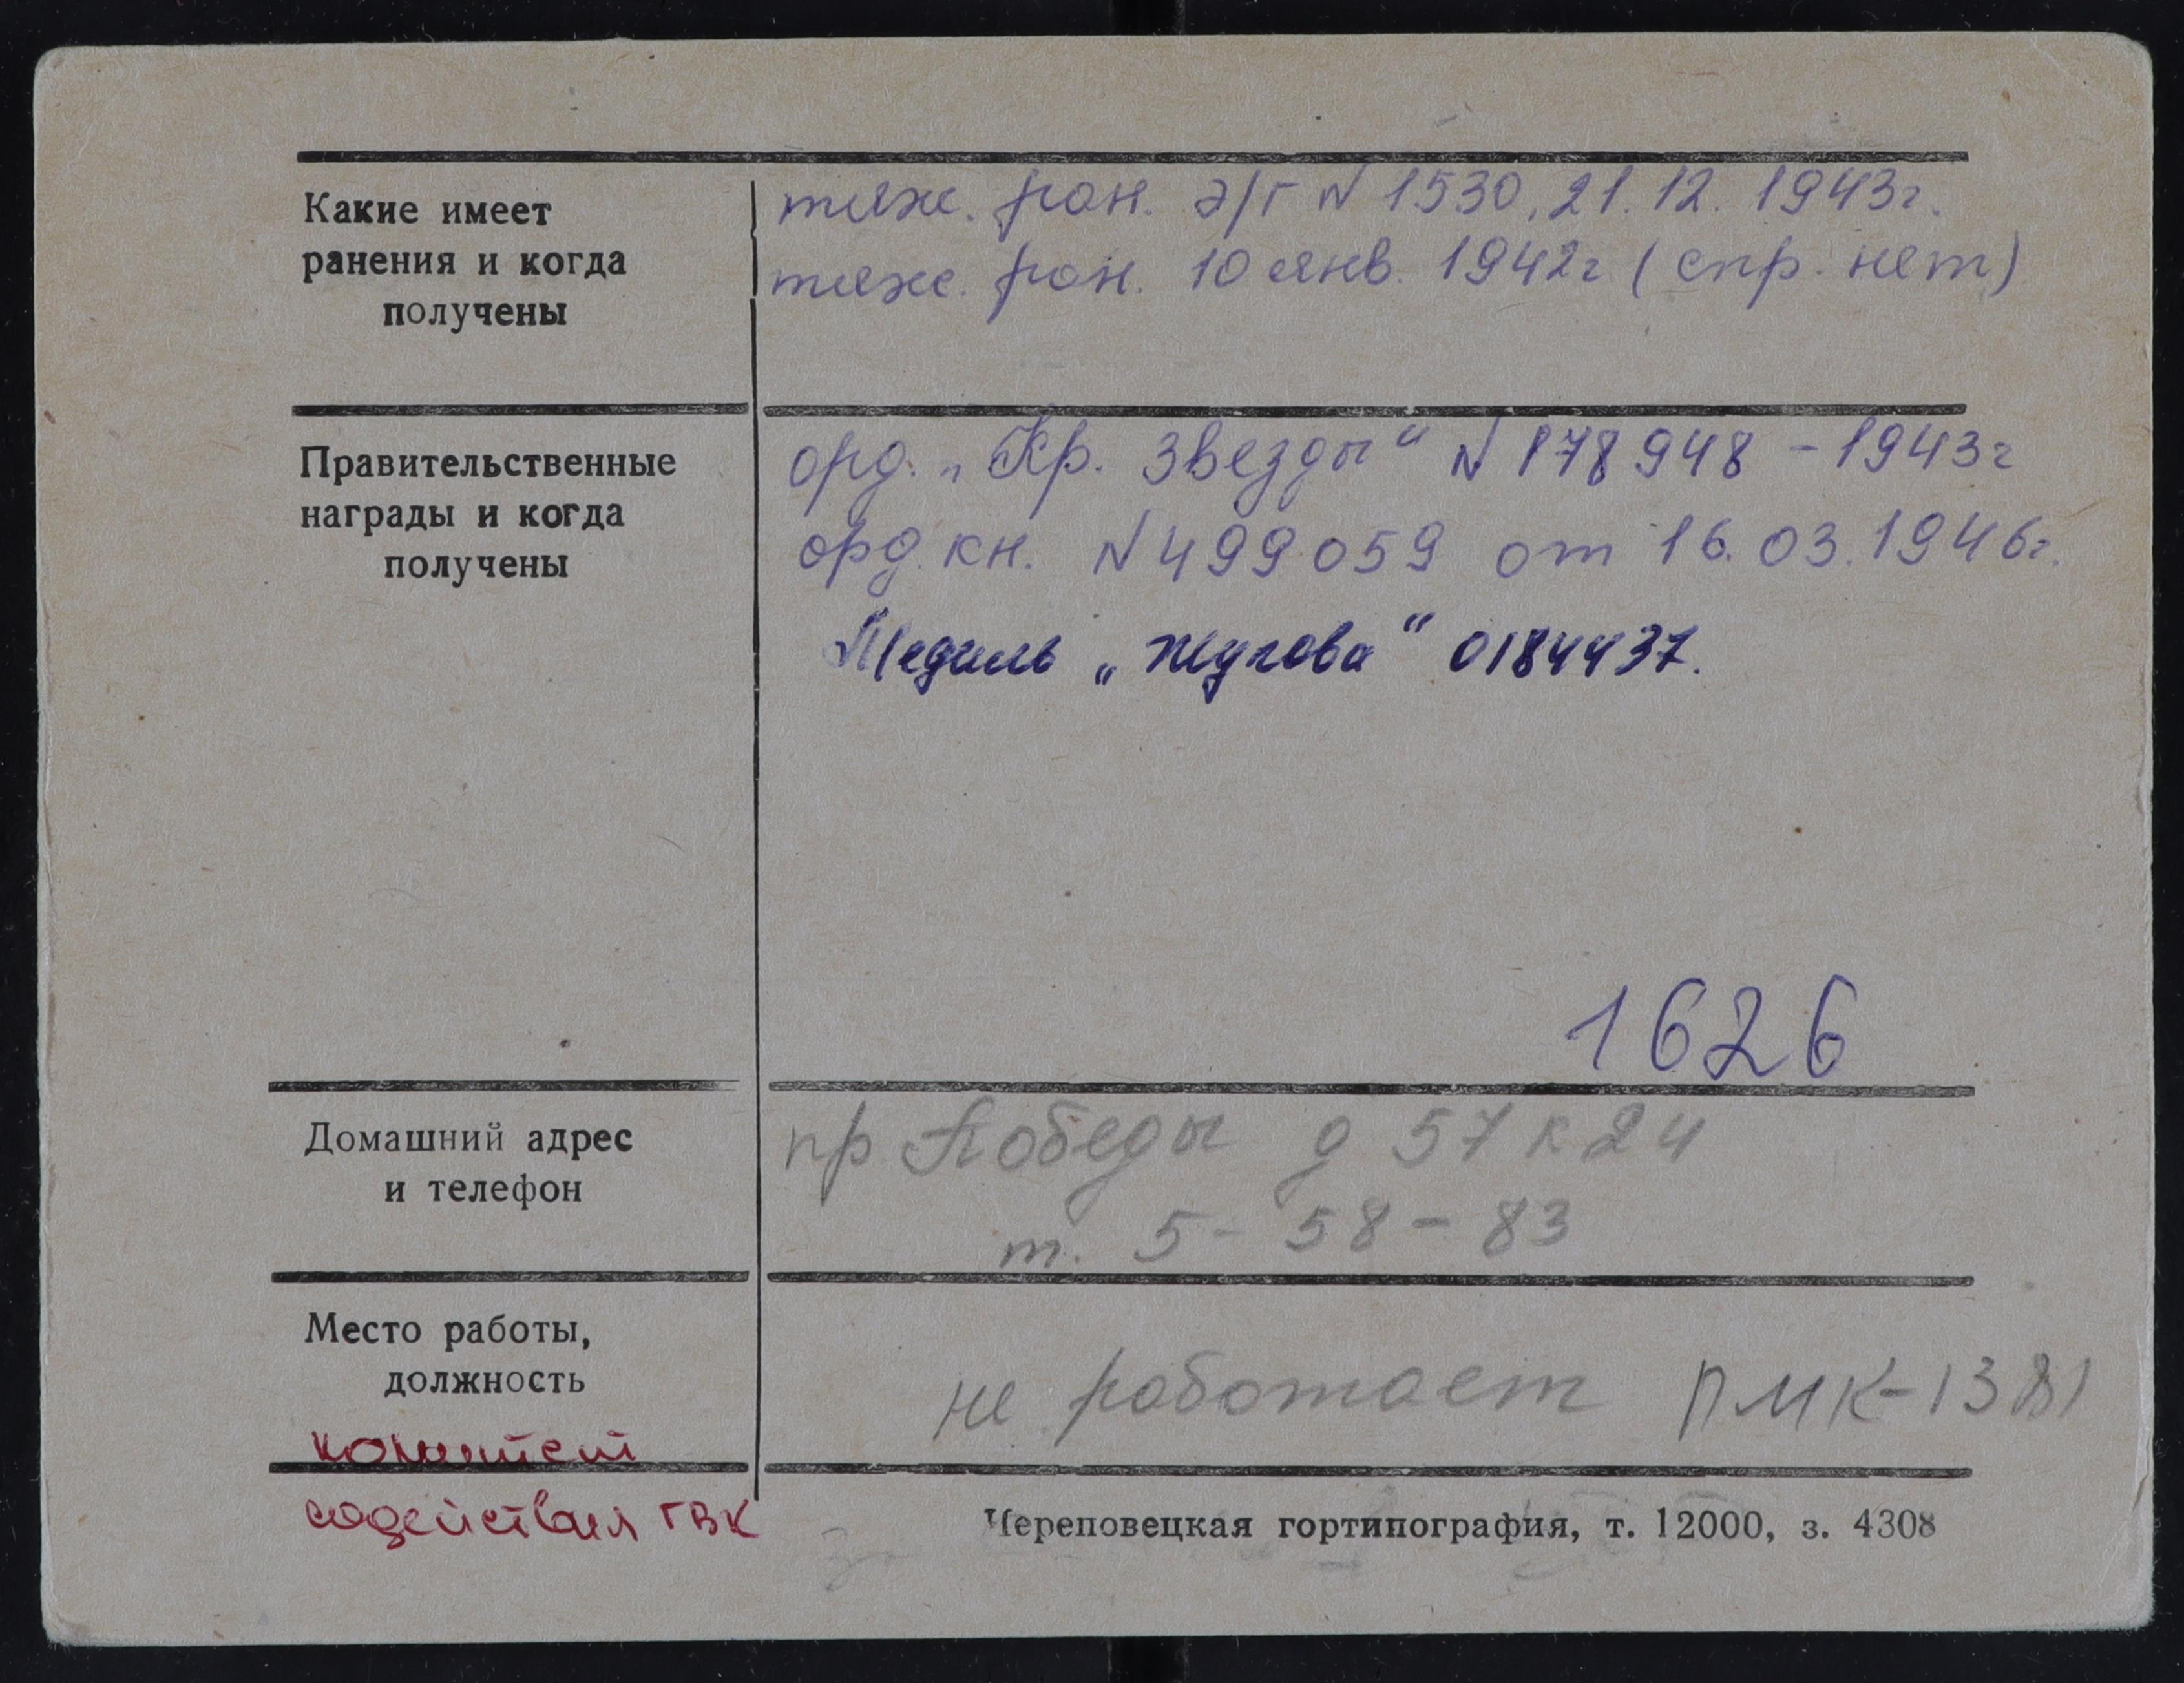 Какие имеет
ранения и когда
получены
тяж. ран. э/г N 1530, 21.12.1943г.
тяж. ран. 10 янв. 1942г (спр. нет)
Правительственные
награды и когда
получены
орд. „Кр. Звезды“ N 178948 - 1943г
орд. кн. N 499059 от 16.03.1946г.
Медаль „Жукова“ 0184437.
1626
Домашний адрес
и телефон
пр Победы д 57 к 24
т. 5-58-83
Место работы,
должность
не работает ПМК-1381
комитет
содействия ГВК
Череповецкая гортипография, т. 12000, з. 4308